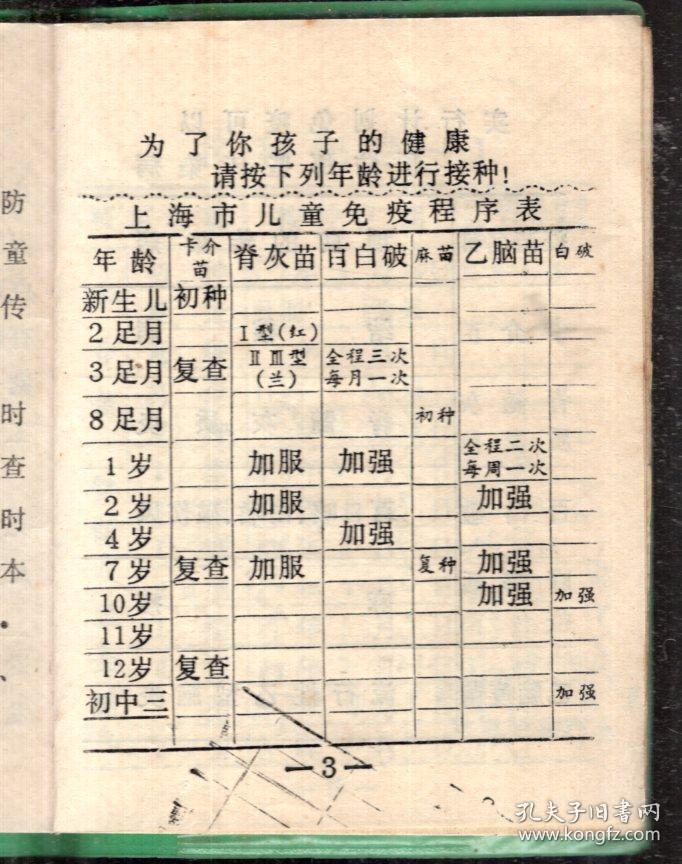 防
童
传
时
查
时
本
为了你孩子的健康
请按下列年龄进行接种!
上海市儿童免疫程序表
年龄 卡介苗 脊灰苗 百白破 麻苗 乙脑苗 白破
新生儿 初种
2足月 Ⅰ型(红)
3足月 复查 ⅡⅢ型(兰) 全程三次每月一次
8足月 初种
1岁 加服 加强 全程二次每周一次
2岁 加服 加强
4岁 加强
7岁 复查 加服 复种 加强
10岁 加强 加强
11岁
12岁 复查
初中三 加强
—3—
孔夫子旧书网
www.kongfz.com